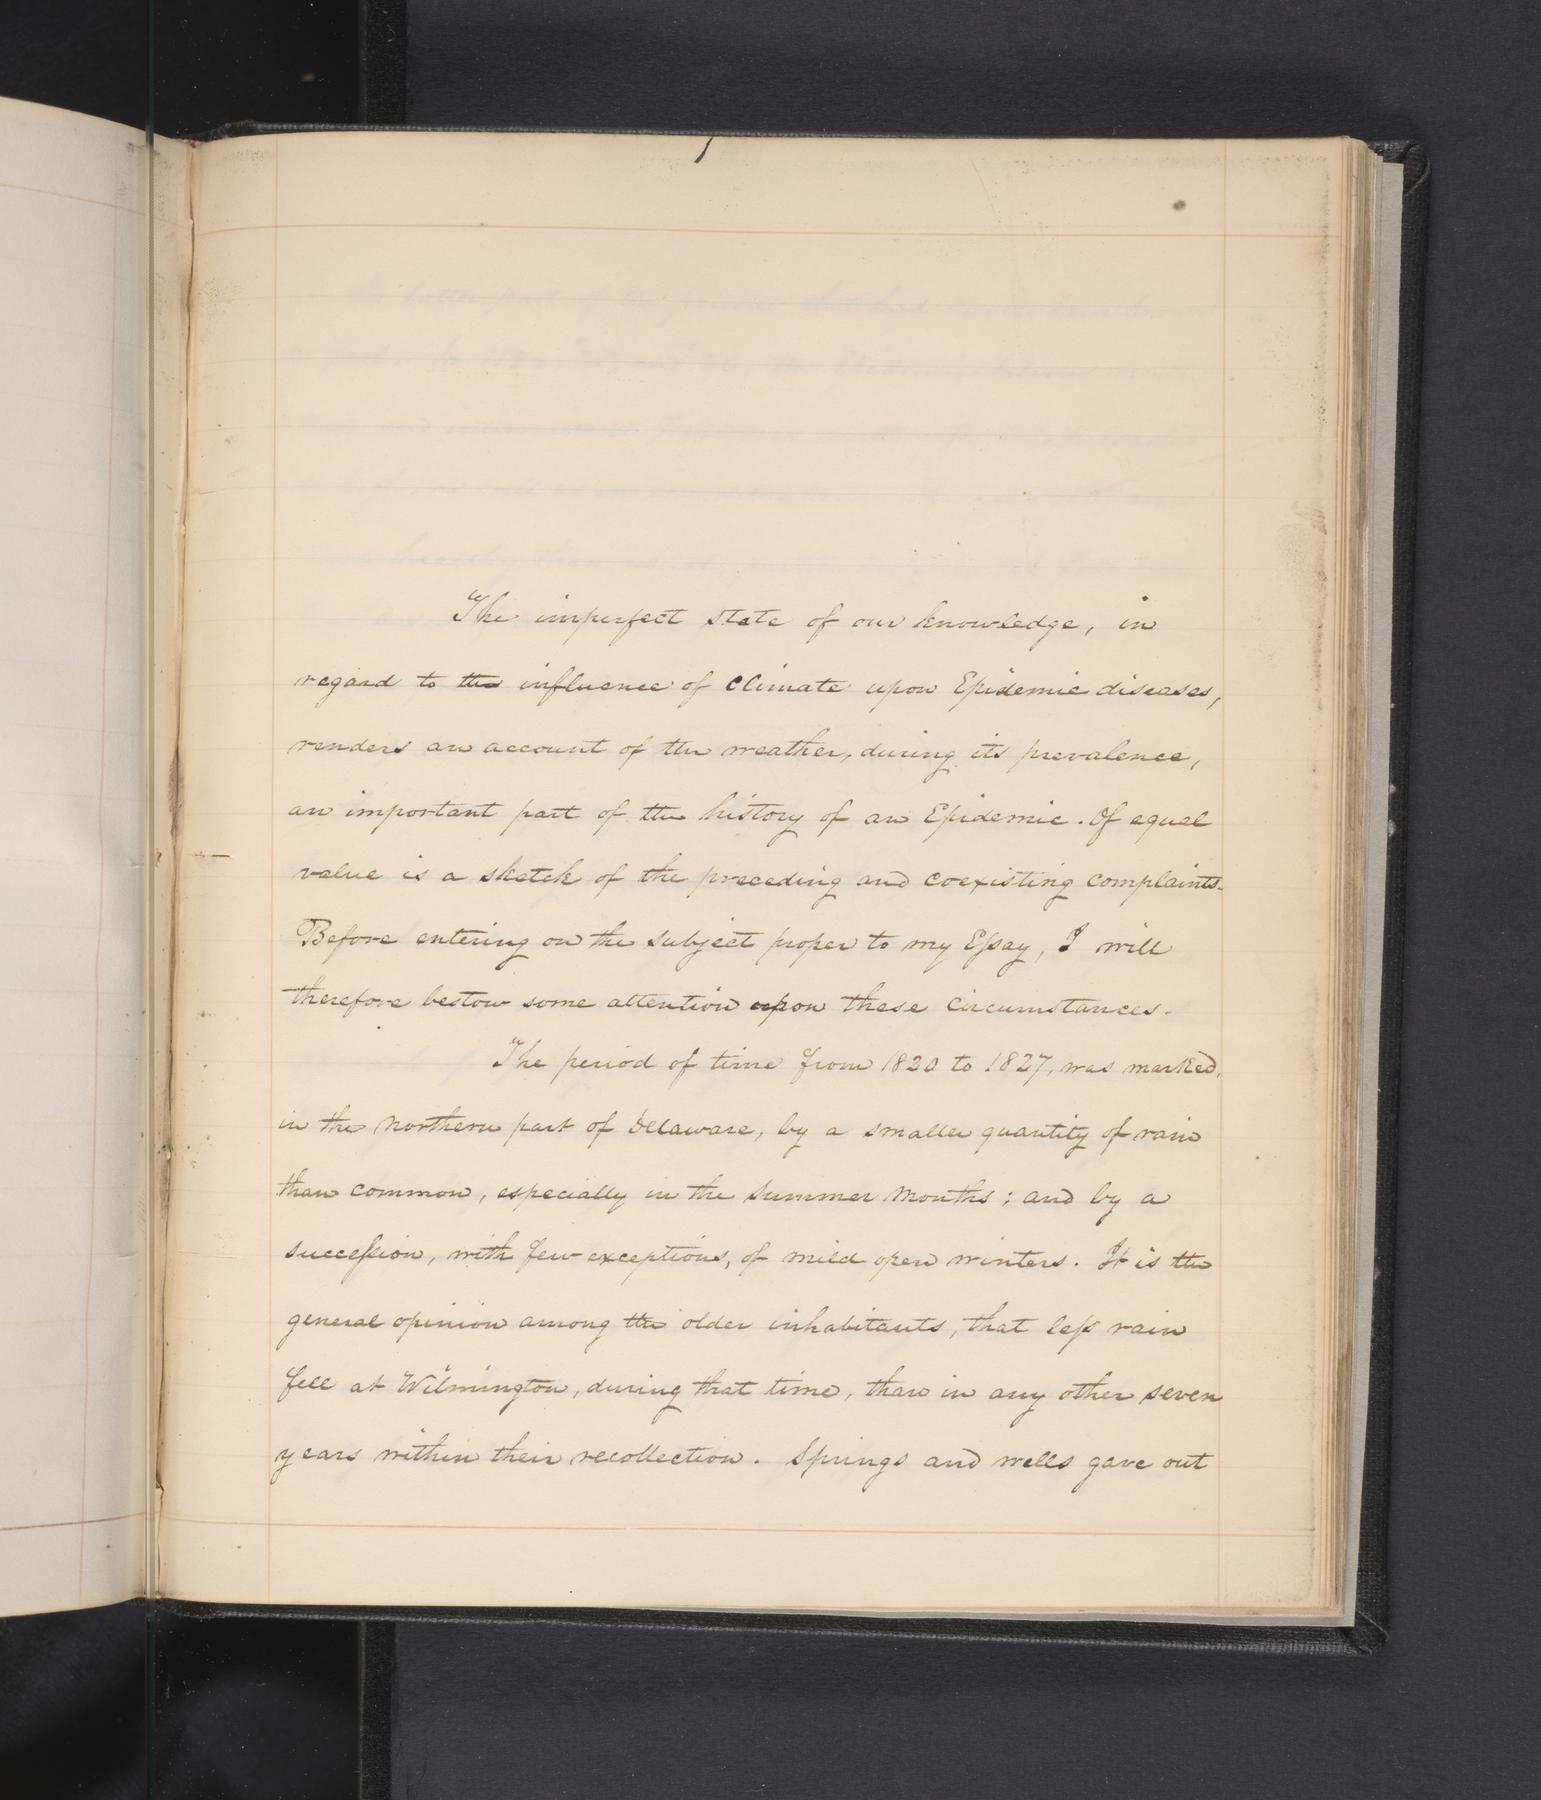 The imperfect state of our knowledge, in
regard to the influence of climate upon Epidemic diseases,
renders an account of the weather, during its prevalence,
an important part of the history of an Epidemic. Of equal
value is a sketch of the preceding and coexisting complaints.
Before entering on the subject proper to my Eſsay, I will
therefore bestow some attention upon these circumstances.
The period of time from 1820 to 1827, was marked,
in the northern part of Delaware, by a smaller quantity of rain
than common, especially in the summer months; and by a
succeſsion, with few exceptions, of mild open winters. It is the
general opinion among the older inhabitants, that leſs rain
fell at Wilmington, during that time, than in any other seven
years within their recollection. Springs and wells gave out